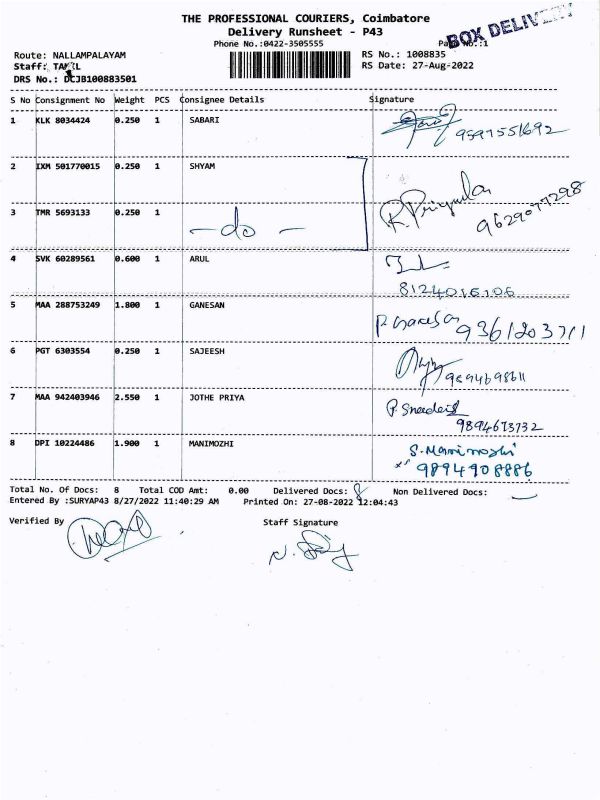 THE PROFESSIONAL COURIERS, Coimbatore
Delivery Runsheet - P43
BOX DELIVERY
Phone No.:0422-3505555
Page No.:1
Route: NALLAMPALAYAM
RS No.: 1008835
Staff:
RS Date: 27-Aug-2022
DRS No.: DCJB100883501
S No Consignment No Weight PCS Consignee Details Signature
1 KLK 8034424 0.250 1 SABARI
9597551692
2 IXM 501770015 0.250 1 SHYAM
R. Priyanka
9629077298
3 TMR 5693133 0.250 1 -do-
4 SVK 60289561 0.600 1 ARUL
8124016106
5 MAA 288753249 1.800 1 GANESAN
9361203711
6 PGT 6303554 0.250 1 SAJEESH
9894698611
7 MAA 942403946 2.550 1 JOTHE PRIYA
9894673732
8 DPI 10224486 1.900 1 MANIMOZHI S. Manimozhi
9894908886
Total No. Of Docs: 8 Total COD Amt: 0.00 Delivered Docs: 8 Non Delivered Docs: -
Entered By :SURYAP43 8/27/2022 11:40:29 AM Printed On: 27-08-2022 12:04:43
Verified By Staff Signature